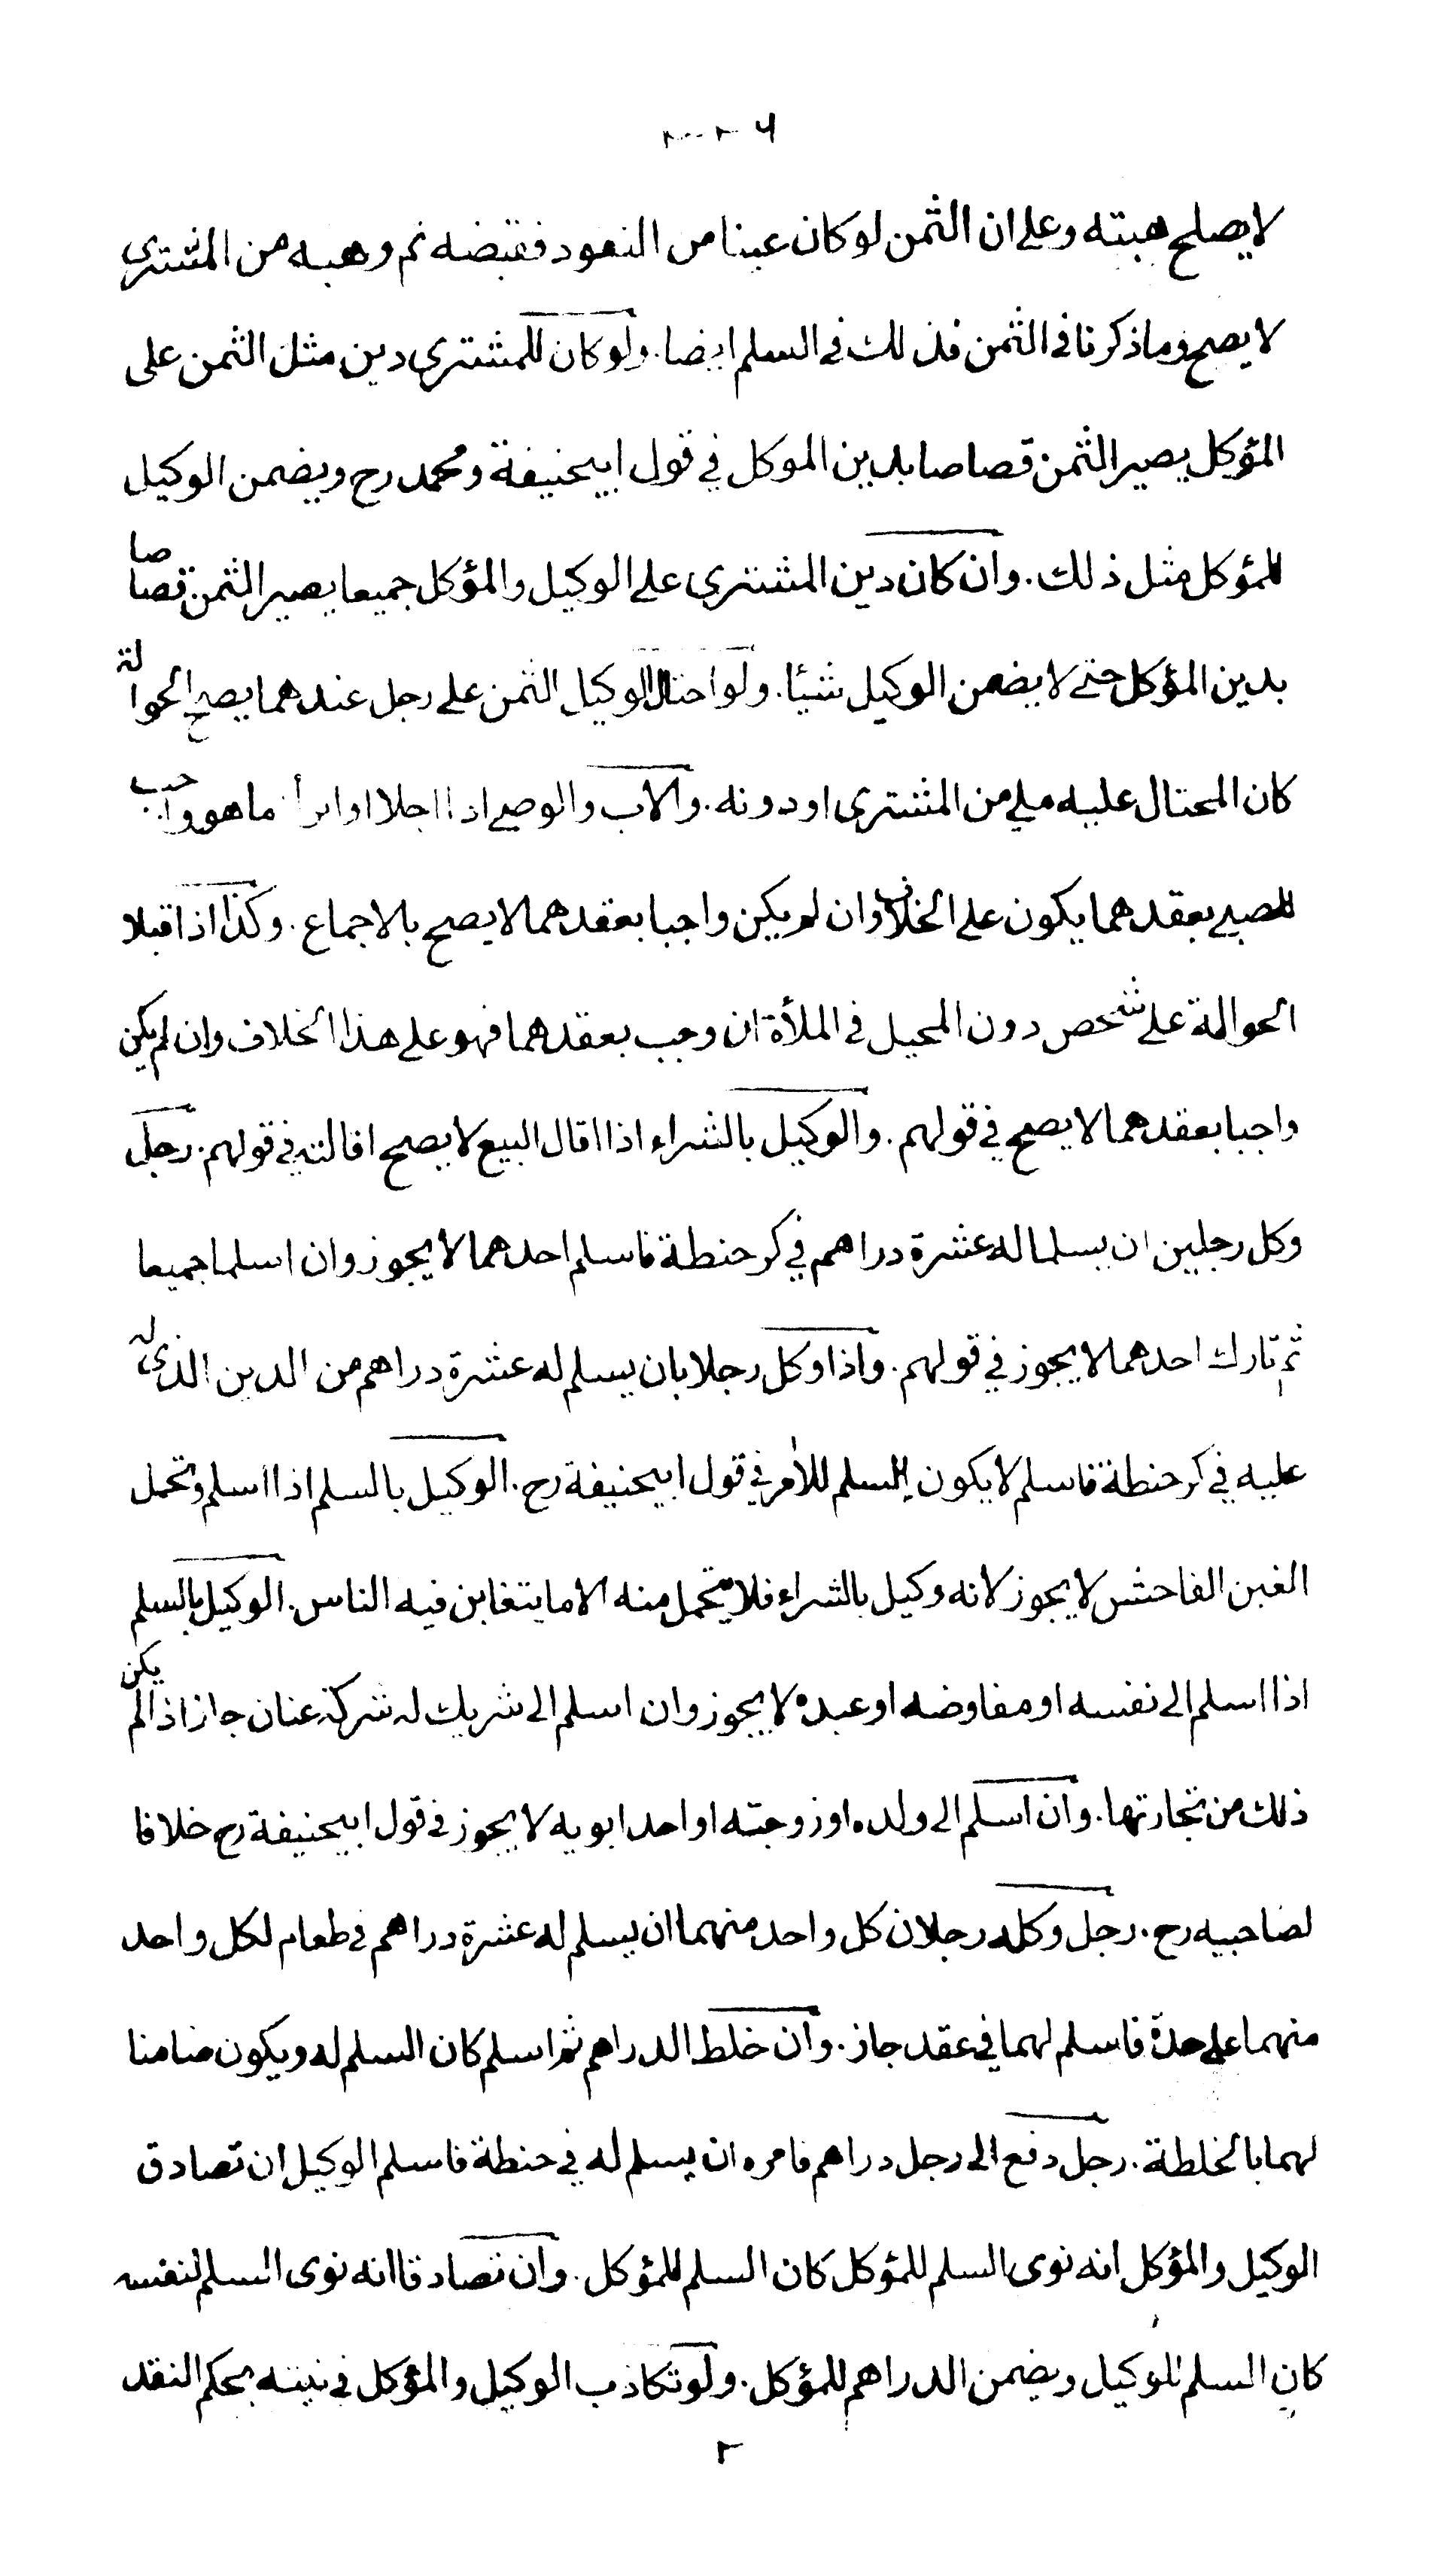 لا يصلح هبته وعلى ان الثمن لو كان عينا من النقود فقبضه ثم وهبه من المشترى
لا يصح وما ذكرنا في الثمن فذلك في السلم ايضا. ولو كان للمشترى دين مثل الثمن على
المؤكل يصير الثمن قصاصا بدين الموكل في قول ابيحنيفة ومحمد رح ويضمن الوكيل
للمؤكل مثل ذلك. وان كان دين المشترى على الوكيل والمؤكل جميعا يصير الثمن قصاصا
بدين المؤكل حتى لا يضمن الوكيل شيئا. ولو احتال الوكيل الثمن على رجل عندهما يصح الحوالة
كان المحتال عليه ملى من المشترى او دونه. والاب والوصى اذا اجلا او ابرأ ما هو واجب
للصبى بعقدهما يكون على الخلاف وان لم يكن واجبا بعقدهما لا يصح بالاجماع. وكذا اذا قبلا
الحوالة على شخص دون المحيل في الملأة ان وجب بعقدهما فهو على هذا الخلاف وان لم يكن
واجبا بعقدهما لا يصح في قولهم. والوكيل بالشراء اذا اقال البيع لا يصح اقالته في قولهم. رجل
وكل رجلين ان يسلما له عشرة دراهم في كر حنطة فاسلم احدهما لا يجوز وان اسلما جميعا
ثم تارك احدهما لا يجوز في قولهم. واذا وكل رجلا بان يسلم له عشرة دراهم من الدين الذى له
عليه في كر حنطة فاسلم لا يكون السلم للآمر في قول ابيحنيفة رح. الوكيل بالسلم اذا اسلم وتحمل
الغبن الفاحش لا يجوز لانه وكيل بالشراء فلا يتحمل منه الا ما يتغابن فيه الناس. الوكيل بالسلم
اذا اسلم الى نفسه او مفاوضه او عبده لا يجوز وان اسلم الى شريك له شركة عنان جاز اذا لم يكن
ذلك من تجارتها. وان اسلم الى ولده او زوجته او احد ابويه لا يجوز في قول ابيحنيفة رح خلافا
لصاحبيه رح. رجل وكله رجلان كل واحد منهما ان يسلم له عشرة دراهم في طعام لكل واحد
منهما على حدة فاسلم لهما في عقد جاز. وان خلط الدراهم ثم اسلم كان السلم له ويكون ضامنا
لهما بالخلطة. رجل دفع الى رجل دراهم فامره ان يسلم له في حنطة فاسلم الوكيل ان تصادق
الوكيل والمؤكل انه نوى السلم للمؤكل كان السلم للمؤكل. وان تصادقا انه نوى السلم لنفسه
كان السلم للوكيل ويضمن الدراهم للمؤكل. ولو تكاذب الوكيل والمؤكل في نيته بحكم النقد